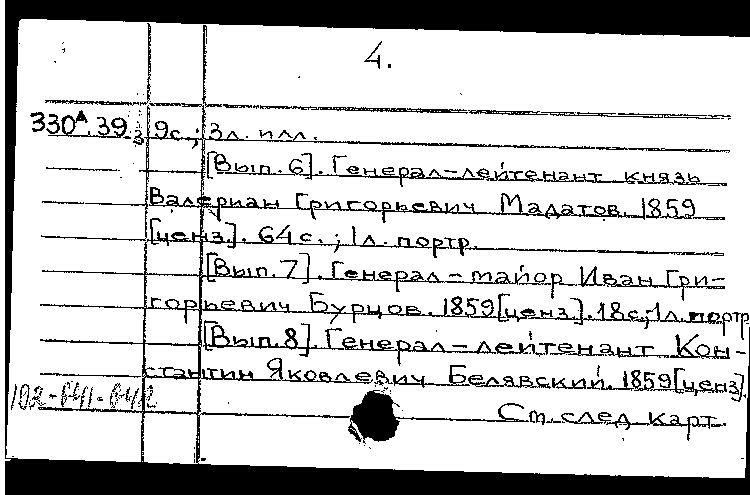 4.
330А.39 9с.; 3л. илл.
[Вып.6]. Генерал-лейтенант князь
Валериан Григорьевич Мадатов. 1859
[ценз]. 64с.; 1л. портр.
[Вып.7]. Генерал-майор Иван Гри-
горьевич Бурцов. 1859[ценз]. 18с.; 1л. портр
[Вып.8]. Генерал-лейтенант Кон-
стантин Яковлевич Белявский. 1859[ценз].
См. след. карт.